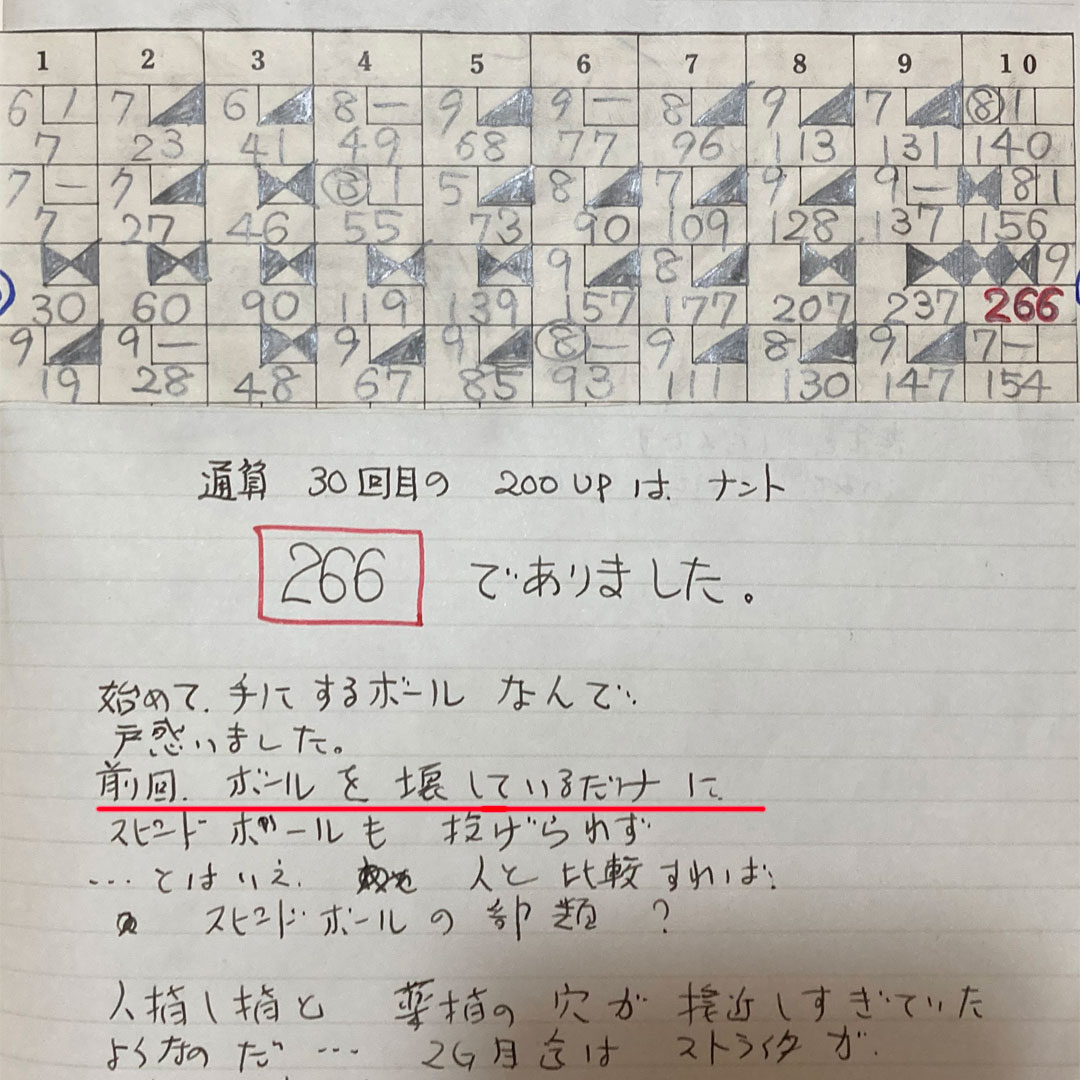 1 2 3 4 5 6 7 8 9 10
6 1 7 6 8 − 9 9 − 8 9 7 ⑧ 1
7 23 41 49 68 77 96 113 131 140
7 − 7 ⑧ 1 5 8 7 9 9 − 8 1
7 27 46 55 73 90 109 128 137 156
9 8 9
30 60 90 119 139 157 177 207 237 266
9 9 − 9 9 ⑧ − 9 8 9 7 −
19 28 48 67 85 93 111 130 147 154
通算 30回目の 200UPは ナント
266 でありました。
始めて、手にするボール なんで、
戸惑いました。
前回、ボールを壊しているだけに、
スピードボールも 投げられず
…とはいえ、人と比較すれば、
スピードボールの部類?
人指し指と 薬指の 穴が 接近しすぎていた
ようなのだ… 2G目迄は ストライクが、